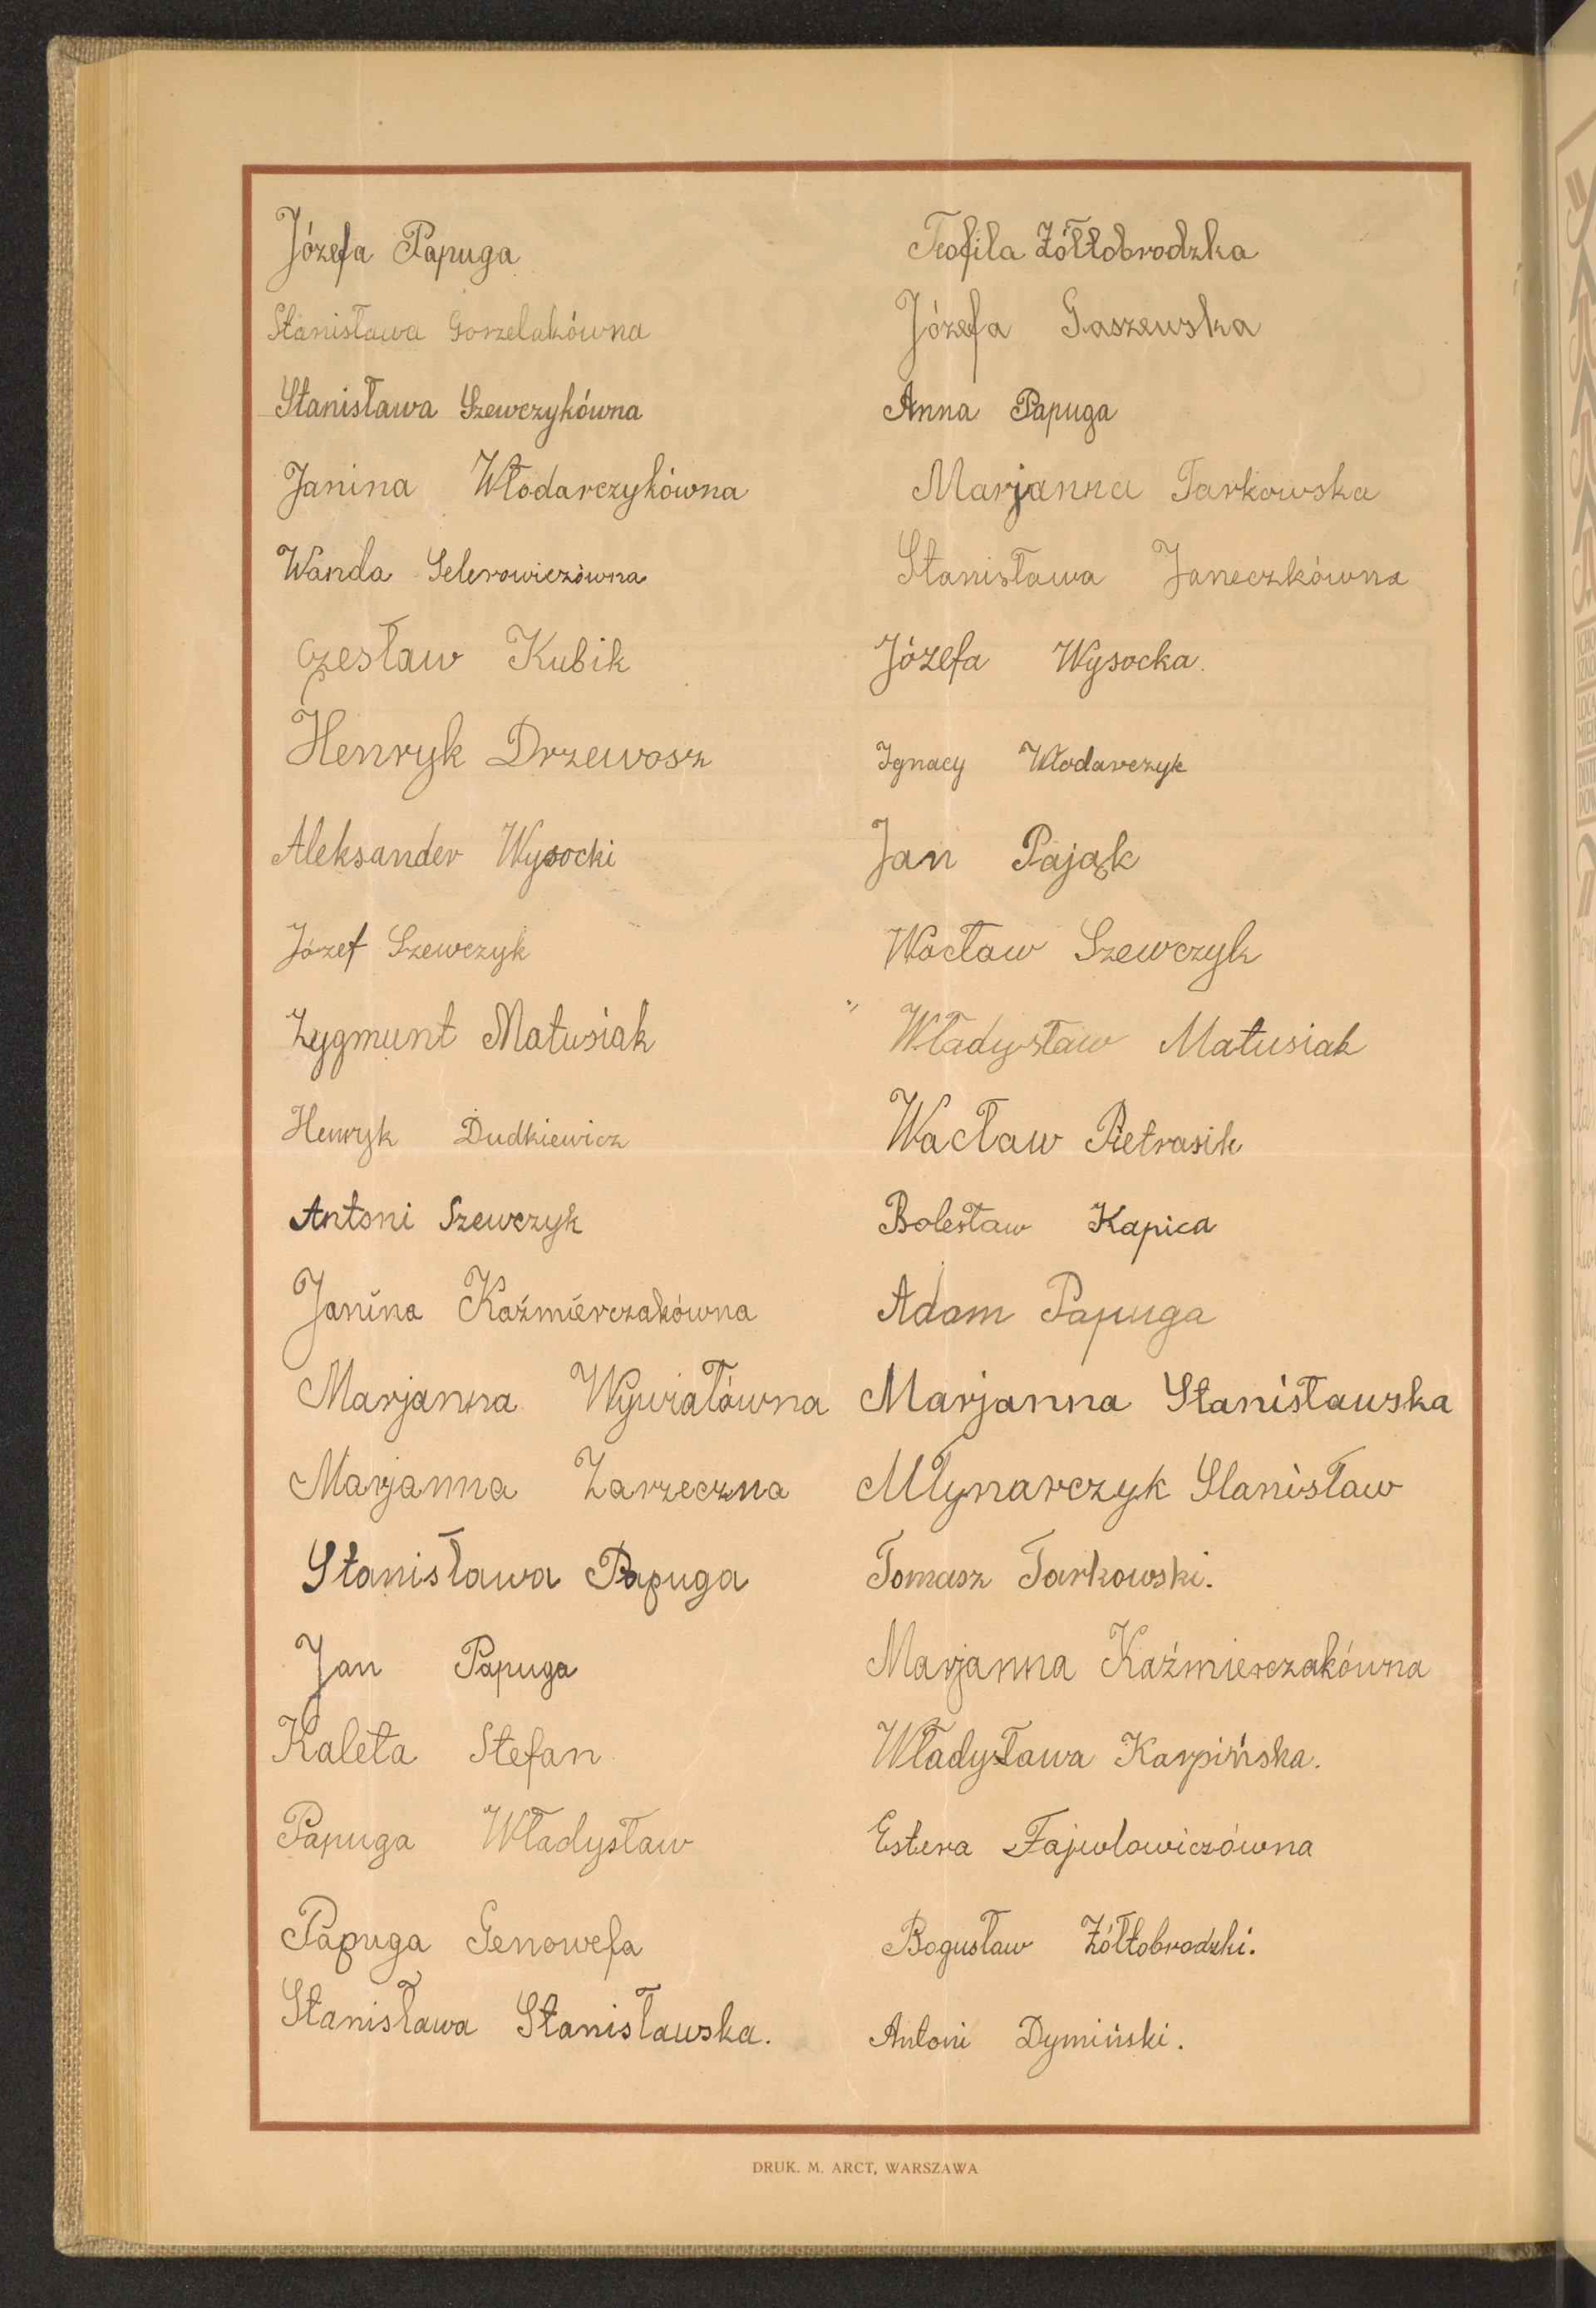 Józefa Papuga
Stanisława Gorzelakówna
Stanisława Szewczykówna
Janina Włodarczykówna
Wanda Selerowiczówna
Czesław Kubik
Henryk Drzewosz
Aleksander Wysocki
Józef Szewczyk
Zygmunt Matusiak
Henryk Dudkiewicz
Antoni Szewczyk
Janina Kaźmierczakówna
Marjanna Wywiałówna
Marjanna Zarzeczna
Stanisława Papuga
Jan Papuga
Kaleta Stefan
Papuga Władysław
Papuga Genowefa
Stanisława Stanisławska.
Teofila Żółłobrodzka
Józefa Gaszewska
Anna Papuga
Marjanna Tarkowska
Stanisława Janeczkówna
Józefa Wysocka.
Ignacy Włodarczyk
Jan Pająk
Wacław Szewczyk
Władysław Matusiak
Wacław Pietrasik
Bolesław Kapica
Adam Papuga
Marjanna Stanisławska
Młynarczyk Stanisław
Tomasz Tarkowski.
Marjanna Kaźmierczakówna
Władysława Karpińska.
Estera Fajwlowiczówna
Bogusław Żółłobrodzki.
Antoni Dymiński.
DRUK. M. ARCT, WARSZAWA